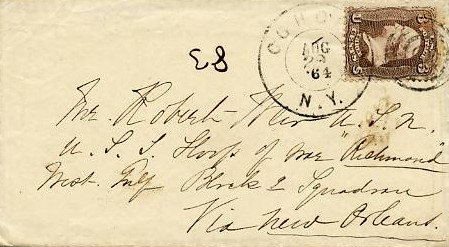 AUG
22
'64
N.Y.
U 3
S 3
Mr. Robert Weir U.S.N.
U. S. S. Sloop of war "Richmond"
West. Gulf Block'g Squadron
Via New Orleans.